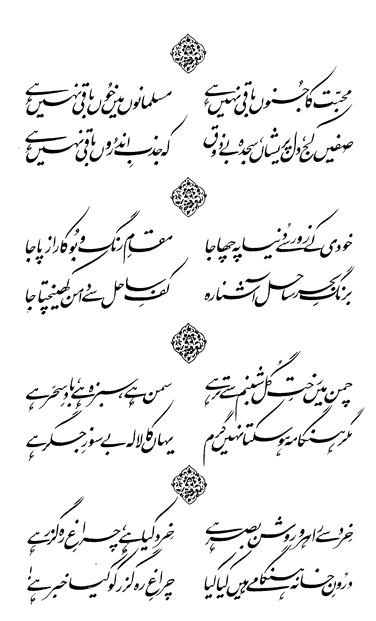 محبّت کا جنوں باقی نہیں ہے مسلمانوں میں خوں باقی نہیں ہے
صفیں کج، دل پریشاں، سجدہ بے ذوق کہ جذبِ اندروں باقی نہیں ہے
خودی کے زور سے دنیا پہ چھا جا مقامِ رنگ و بو کا راز پا جا
برنگِ بحر ساحل آشنا رہ کفِ ساحل سے دامن کھینچتا جا
چمن میں رختِ گل شبنم سے تر ہے سمن ہے، سبزہ ہے، بادِ سحر ہے
مگر ہنگامہ ہو سکتا نہیں گرم یہاں کا لالہ بے سوزِ جگر ہے
خرد سے راہرو روشن بصر ہے خرد کیا ہے، چراغِ رہ گزر ہے
درونِ خانہ ہنگامے ہیں کیا کیا چراغِ رہ گزر کو کیا خبر ہے!